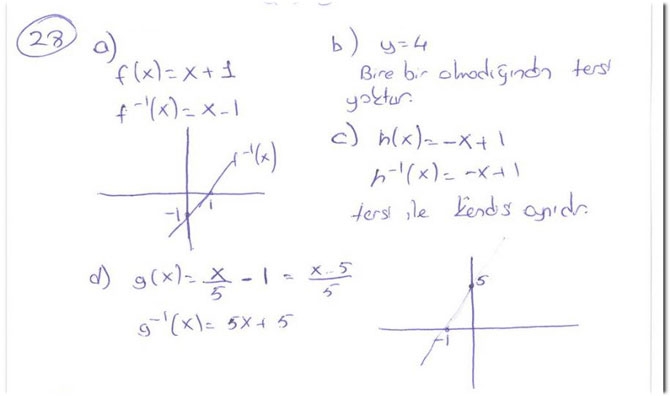 28
a)
f(x) = x + 1
f⁻¹(x) = x - 1
f⁻¹(x)
-1
1
b) y = 4
Bire bir olmadığından tersi
yoktur.
c) h(x) = -x + 1
h⁻¹(x) = -x + 1
tersi ile kendisi aynıdır.
d) g(x) = x/5 - 1 = x-5/5
g⁻¹(x) = 5x + 5
5
-1